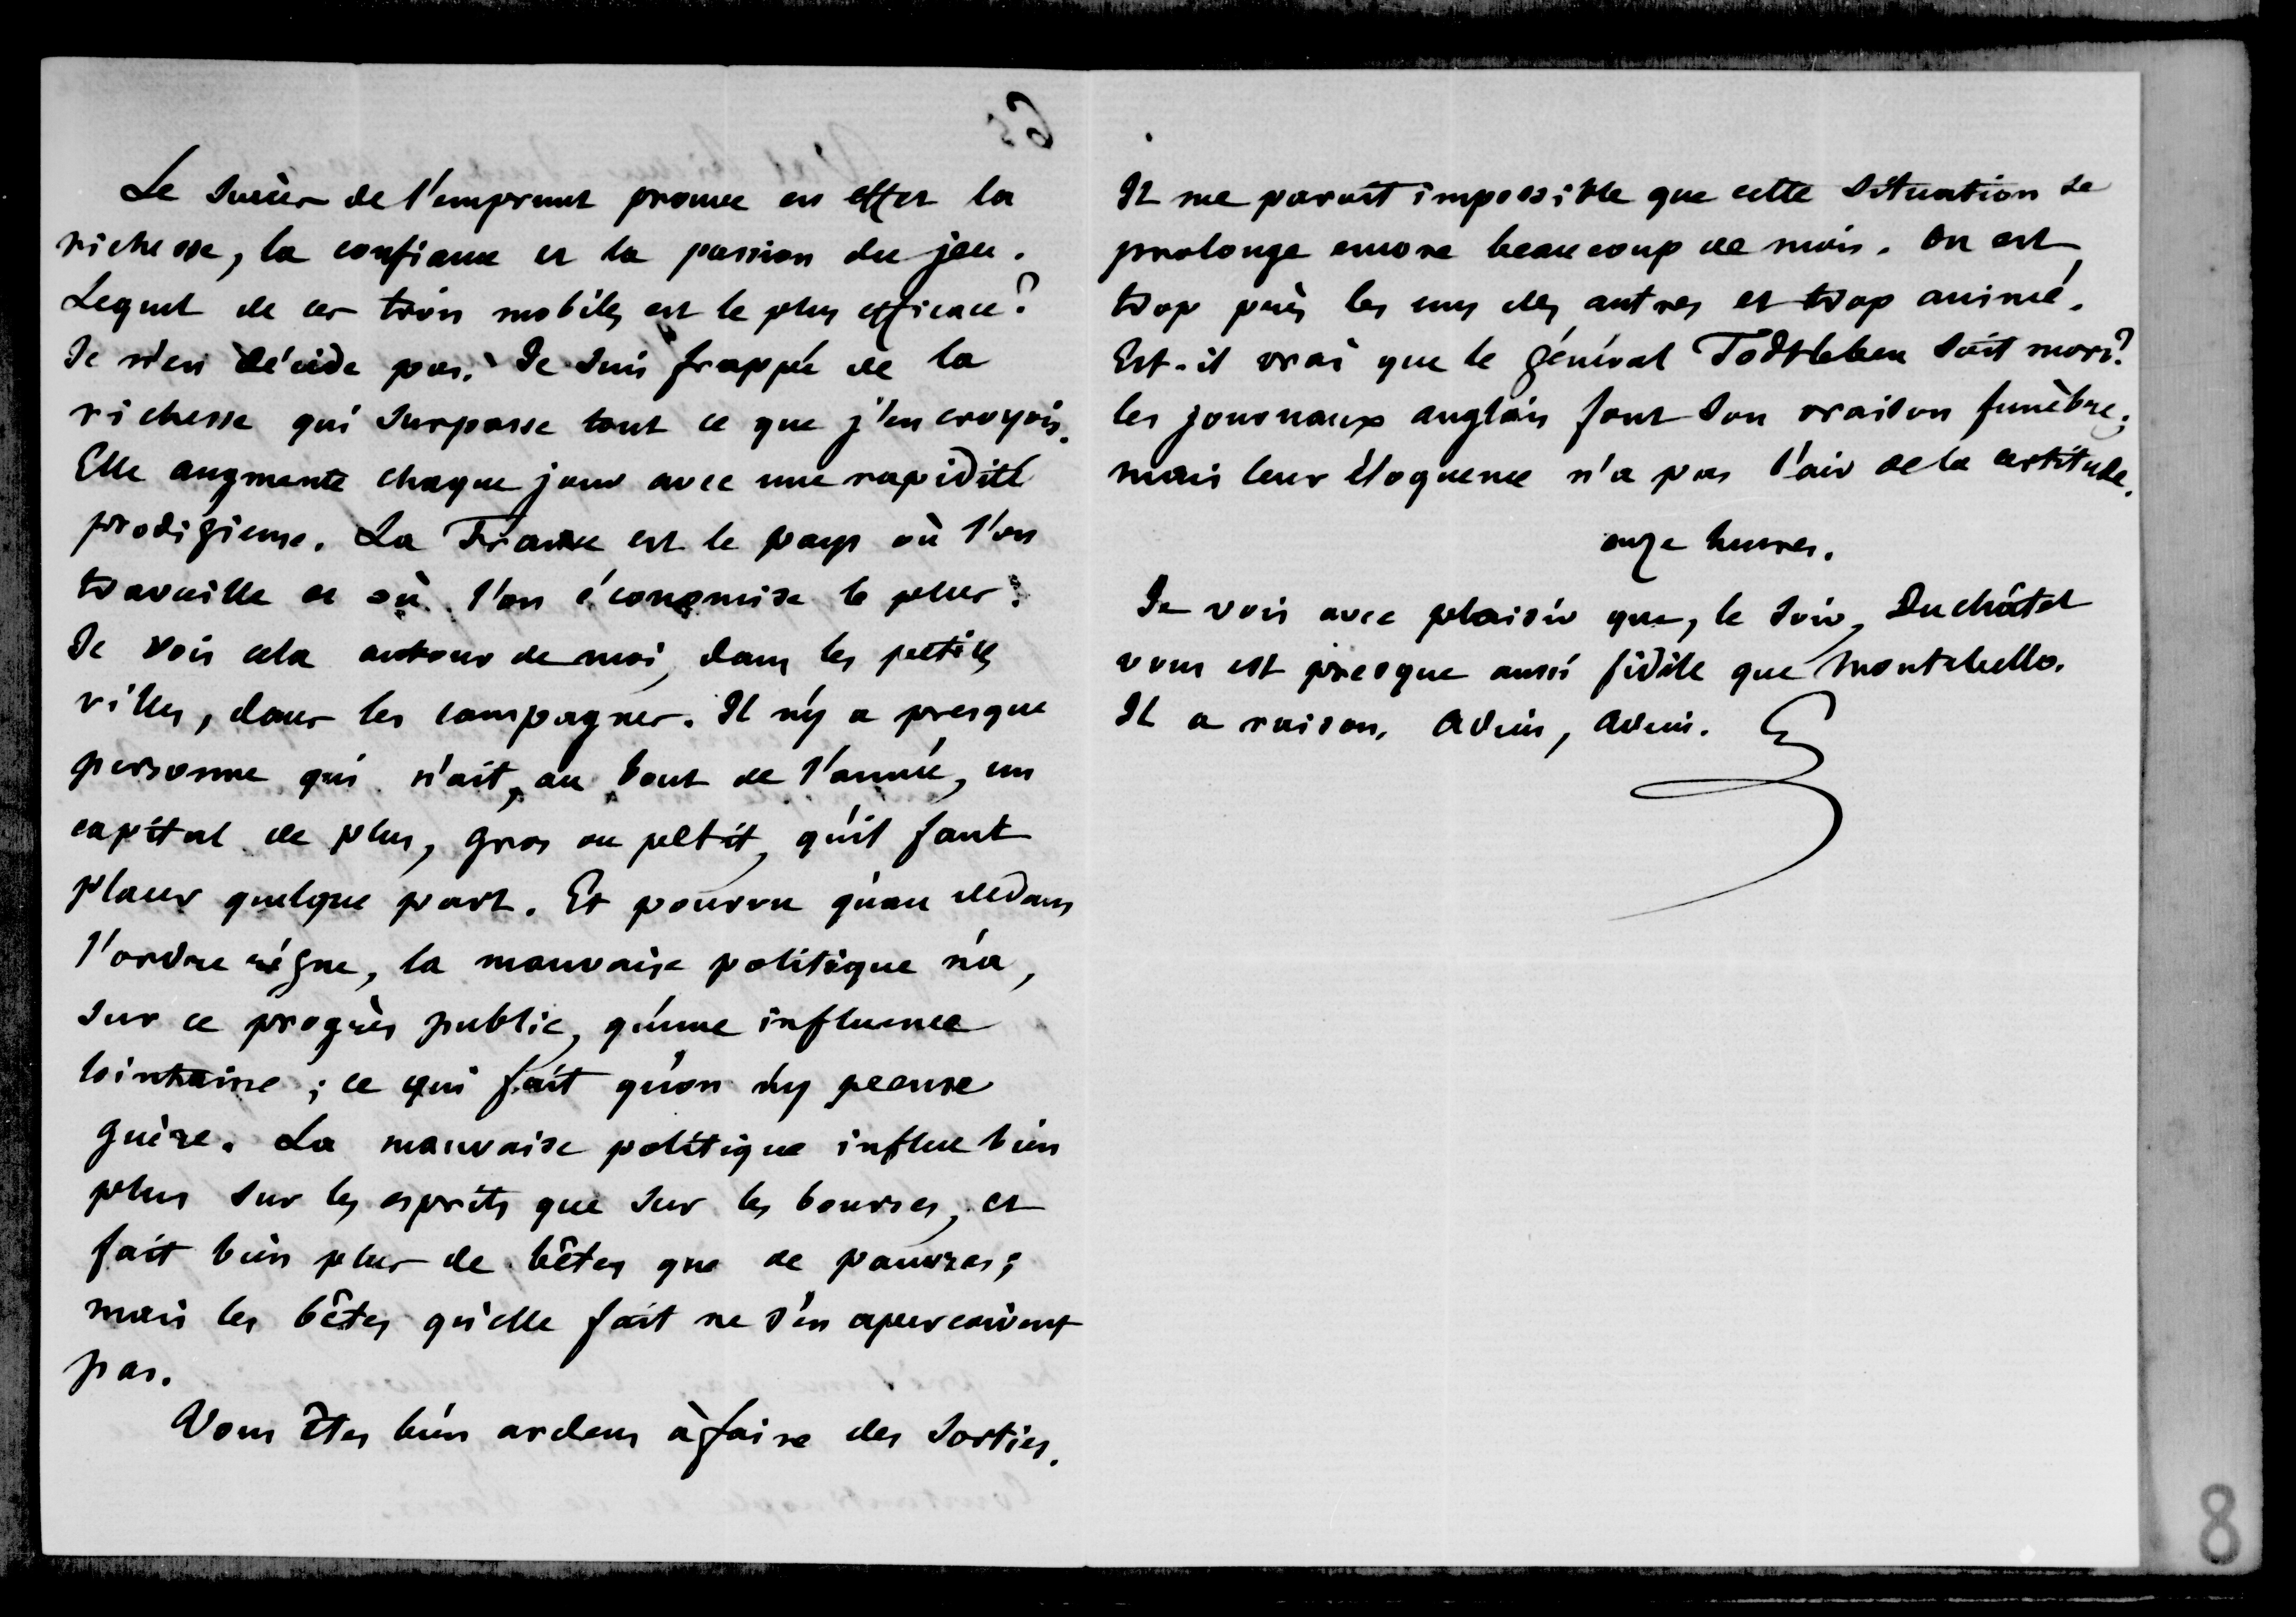 Le succès de l'emprunt prouve en effet la
richesse, la confiance et la passion du jeu.
Lequel de ces trois mobiles est le plus efficace?
Je n'en décide pas. Je suis frappé de la
richesse qui surpasse tout ce que j'en croyois.
Elle augmente chaque jour avec une rapidité
prodigieuse. La France est le pays où l'on
travaille et où l'on économise le plus.
Je vois cela autour de moi, dans les petites
villes, dans les campagnes. Il n'y a presque
personne qui n'ait, au bout de l'année, un
capital de plus, gros ou petit, qu'il faut
placer quelque part. Et pourvu qu'au dedans
l'ordre règne, la mauvaise politique n'a,
sur ce progrès public, qu'une influence
lointaine; ce qui fait qu'on n'y pense
guère. La mauvaise politique influe bien
plus sur les esprits que sur les bourses, et
fait bien plus de bêtes que de pauvres;
mais les bêtes qu'elle fait ne s'en aperçoivent
pas.
Vous êtes bien ardens à faire des sorties.
Il me paroît impossible que cette situation se
prolonge encore beaucoup de mois. On est
trop près les uns des autres et trop animé.
Est-il vrai que le général Todtleben soit mort?
les journaux anglais font son oraison funèbre;
mais leur éloquence n'a pas l'air de la certitude.
onze heures.
Je vois avec plaisir que, le soir, Duchâtel
vous est presque aussi fidèle que Montebello.
Il a raison. Adieu, adieu. G
65
8